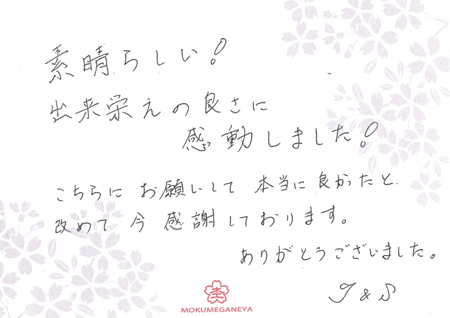 素晴らしい!
出来栄えの良さに
感動しました!
こちらに お願いして 本当に良かったと
改めて 今 感謝しております。
ありがとうございました。
T & S
MOKUMEGANEYA